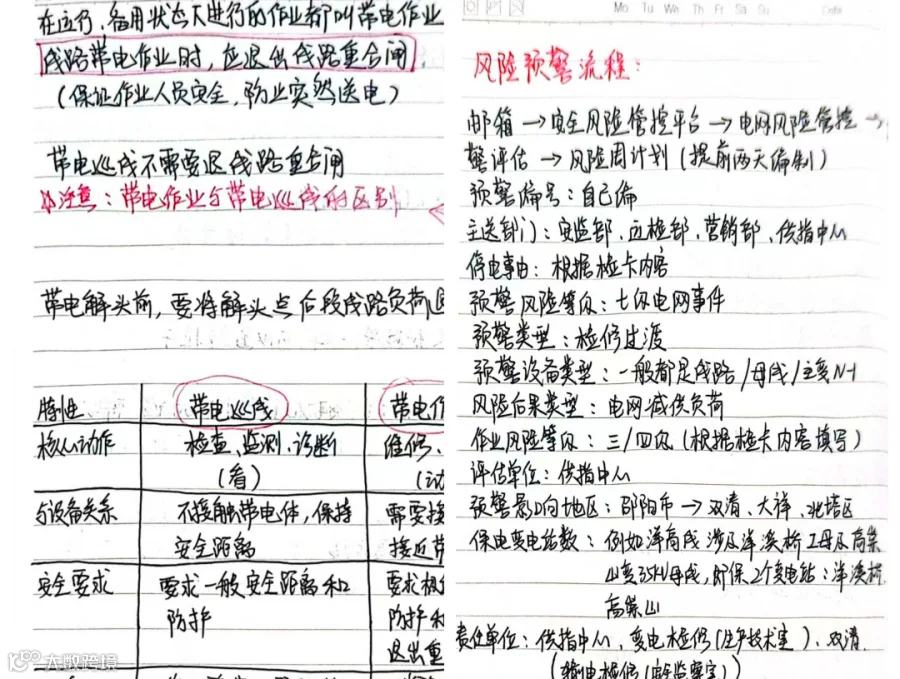 在运行、备用状态下进行的作业都叫带电作业
线路带电作业时，应退出线路重合闸
（保证作业人员安全，防止突然送电）
带电巡线不需要退线路重合闸
注意：带电作业与带电巡线的区别
带电解头前，要将解头点后段线路负荷退
特性
带电巡线
带电作
核心动作
检查、监测、诊断
（看）
维修、
与设备关系
不接触带电体，保持
安全距离
需要接
接近带
安全要求
要求一般安全距离和
防护
要求极
防护和
退出重
大数跨境
Mo Tu We Th Fr Sa Su
Date
风险预警流程：
邮箱→安全风险管控平台→电网风险管控→
警评估→风险周计划（提前两天编制）
预警编号：自己编
主送部门：安监部、运检部、营销部、供指中心
停电事由：根据检卡内容
预警风险等级：七级电网事件
预警类型：检修过渡
预警设备类型：一般都是线路/母线/主变N-1
风险后果类型：电网减供负荷
作业风险等级：三/四级（根据检卡内容填写）
评估单位：供指中心
预警影响地区：邵阳市→双清、大祥、北塔区
保电变电站数：例如洋高线涉及洋溪桥I母及高崇
山变35kV母线，即保2个变电站：洋溪桥
高崇山
责任单位：供指中心、变电检修（生产技术室）、双清
（输电检修（安监室））